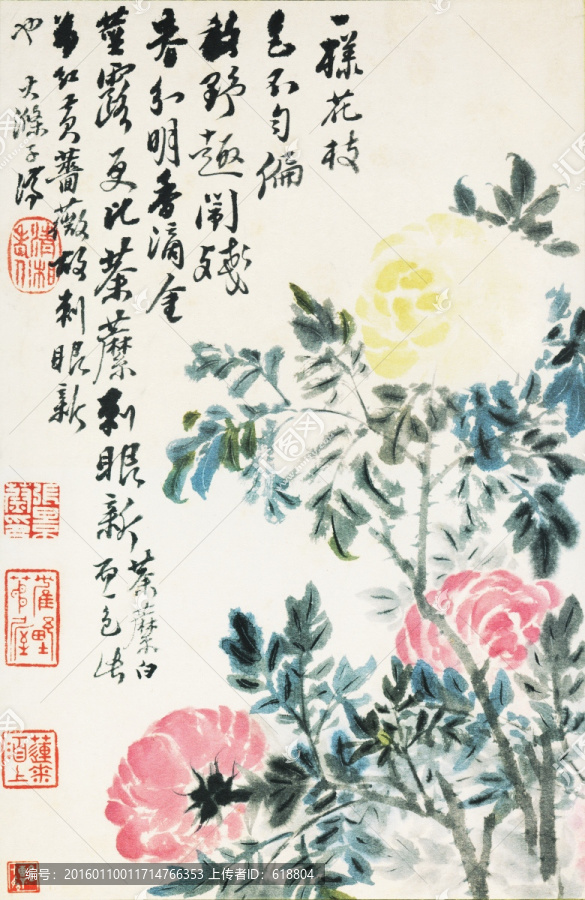 一樣花枝
色不勻偏
教野趣鬧殘
春分明香滴金
莖露更比荼蘼刺眼新 荼蘼白
而一色
紅黃薔薇故刺眼新
也 大滌子濟
清湘老人
编号:20160110011714766353 上传者ID:618804